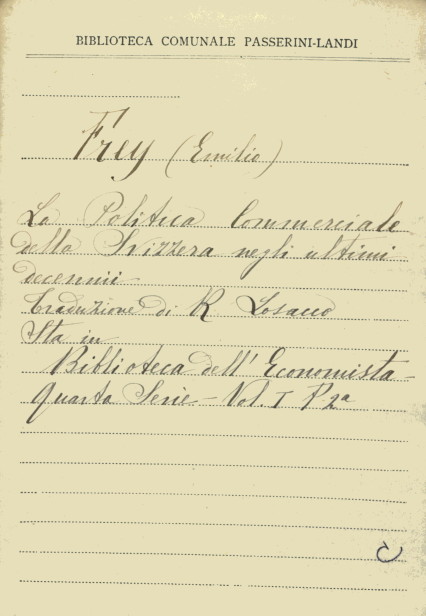 BIBLIOTECA COMUNALE PASSERINI-LANDI
Frey (Emilio)
La Politica Commerciale
della Svizzera negli ultimi
decennii
traduzione di R Losacco
Sta in
Biblioteca dell' Economista -
quarta Serie - Vol. I P 2a